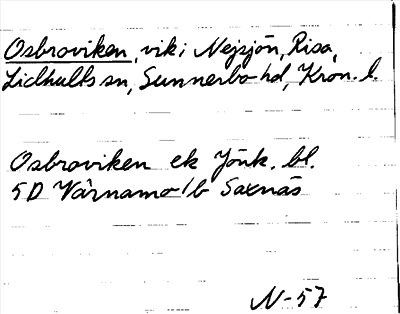 Osbroviken, vik i Nejsjön, Risa,
Lidhults sn, Sunnerbo hd, Kron. l.
Osbroviken ek Jönk. bl.
5D Värnamo/b Saxnäs
N-57